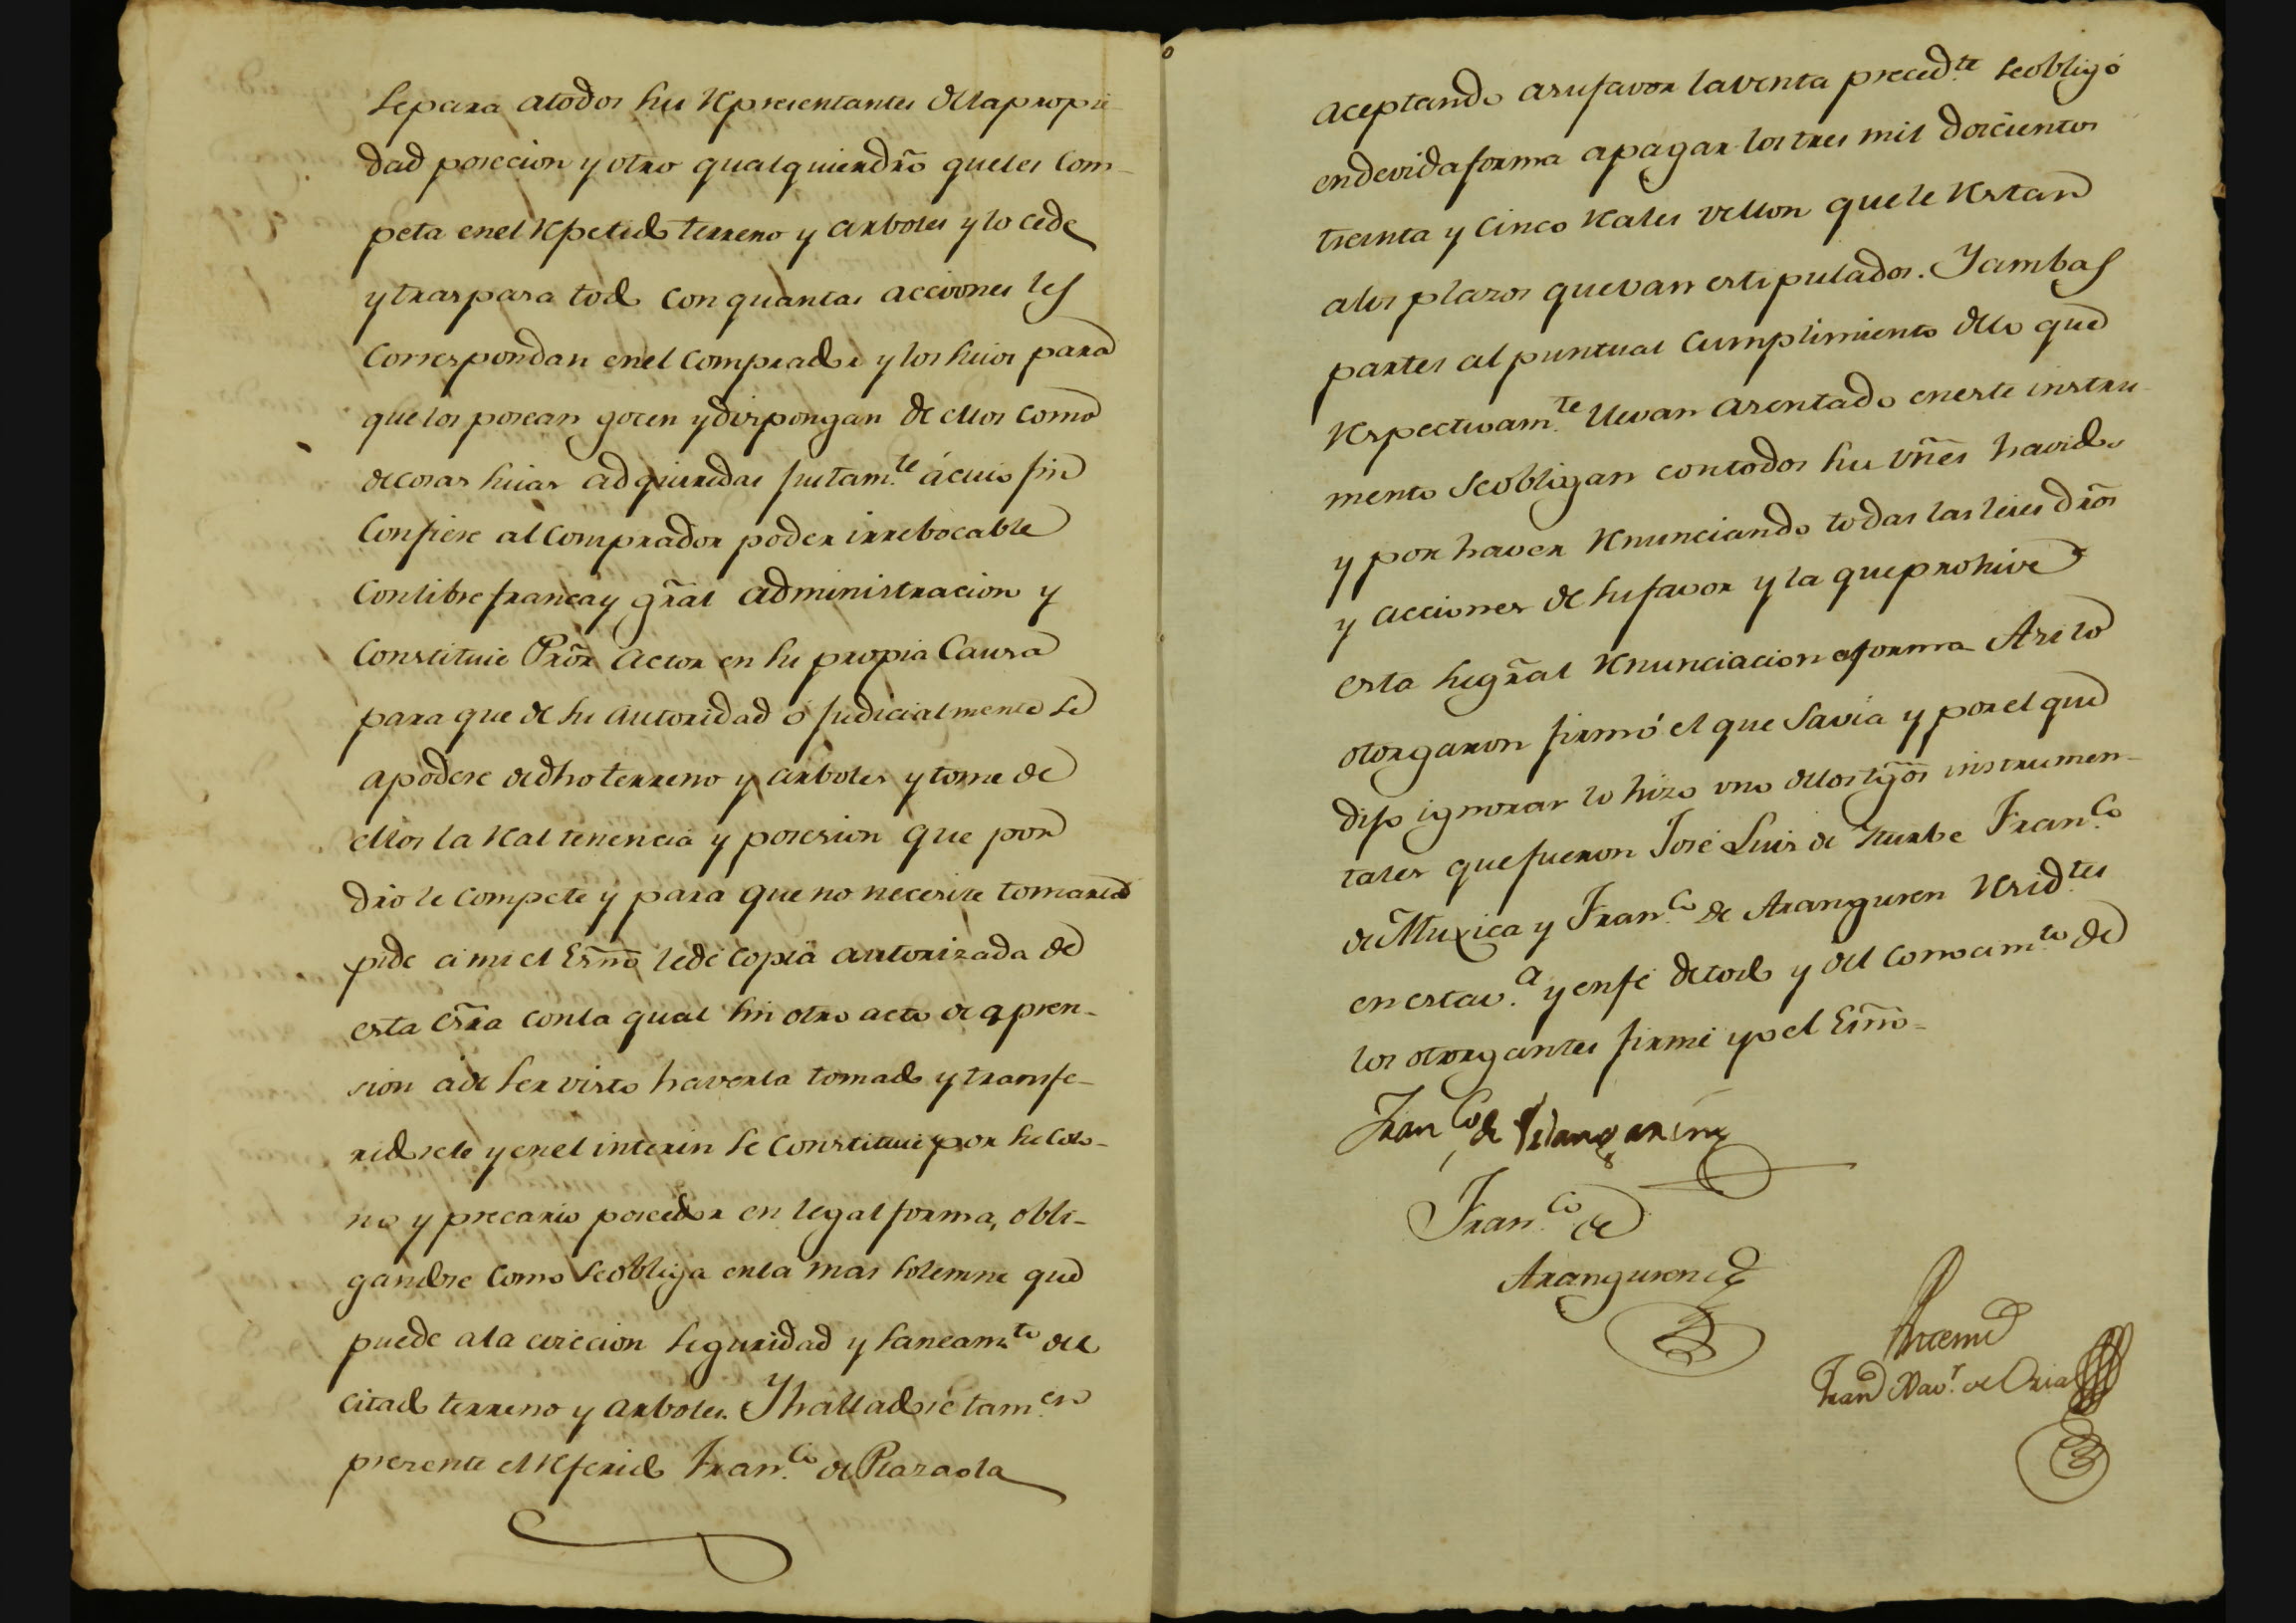 separa a todos sus representantes de la propie-
dad posecion y otro qualquier dro que les com-
peta en el repetido terreno y arboles y lo cede
y traspasa todo con quantas acciones les
correspondan en el comprador y los suios para
que los posean gocen y dispongan de ellos como
de cosas suias adquiridas justam.te á cuio fin
confiere al comprador poder irrebocable
con libre franca y gral administracion y
constituie Pror actor en su propia causa
para que de su autoridad o judicialmente se
apodere de dho terreno y arboles y tome de
ellos la real tenencia y posesion que por
dro le compete y para que no necesite tomarla
pide a mi el Esño le dé copia autorizada de
esta Esra con la qual sin otro acto de apren-
sion á de ser visto haverla tomado y transfe-
ridosele y en el interin se constituie por su colo-
no y precario poseedor en legal forma, obli-
gandose como se obliga en la mas solemne que
puede a la eviccion seguridad y saneam.to del
citado terreno y arboles. Y halladose tam.en
presente el referido Fran.co de Plazaola
aceptando a su favor la venta preced.te se obligó
en devida forma a pagar los tres mil doscientos
treinta y cinco reales vellon que le restan
a los plazos que van estipulados. Y ambas
partes al puntual cumplimiento de lo que
respectivam.te llevan asentado en este instru-
mento se obligan con todos sus vñes havidos
y por haver renunciando todas las leies dros
y acciones de su favor y la que prohive
esta su gral renunciacion en forma Asi lo
otorgaron firmó el que savia y por el que
dijo ignorar lo hizo uno de los tgõs instrumen-
tales que fueron José Luis de Iturbe Fran.co
de Muxica y Fran.co de Aranguren resid.tes
en esta v.a y en fé de todo y del conocim.to de
los otorgantes firmé yo el Esñö=
Fran.co de
Fran.co de
Aranguren
Antemi
Fran Xav.r de Oria